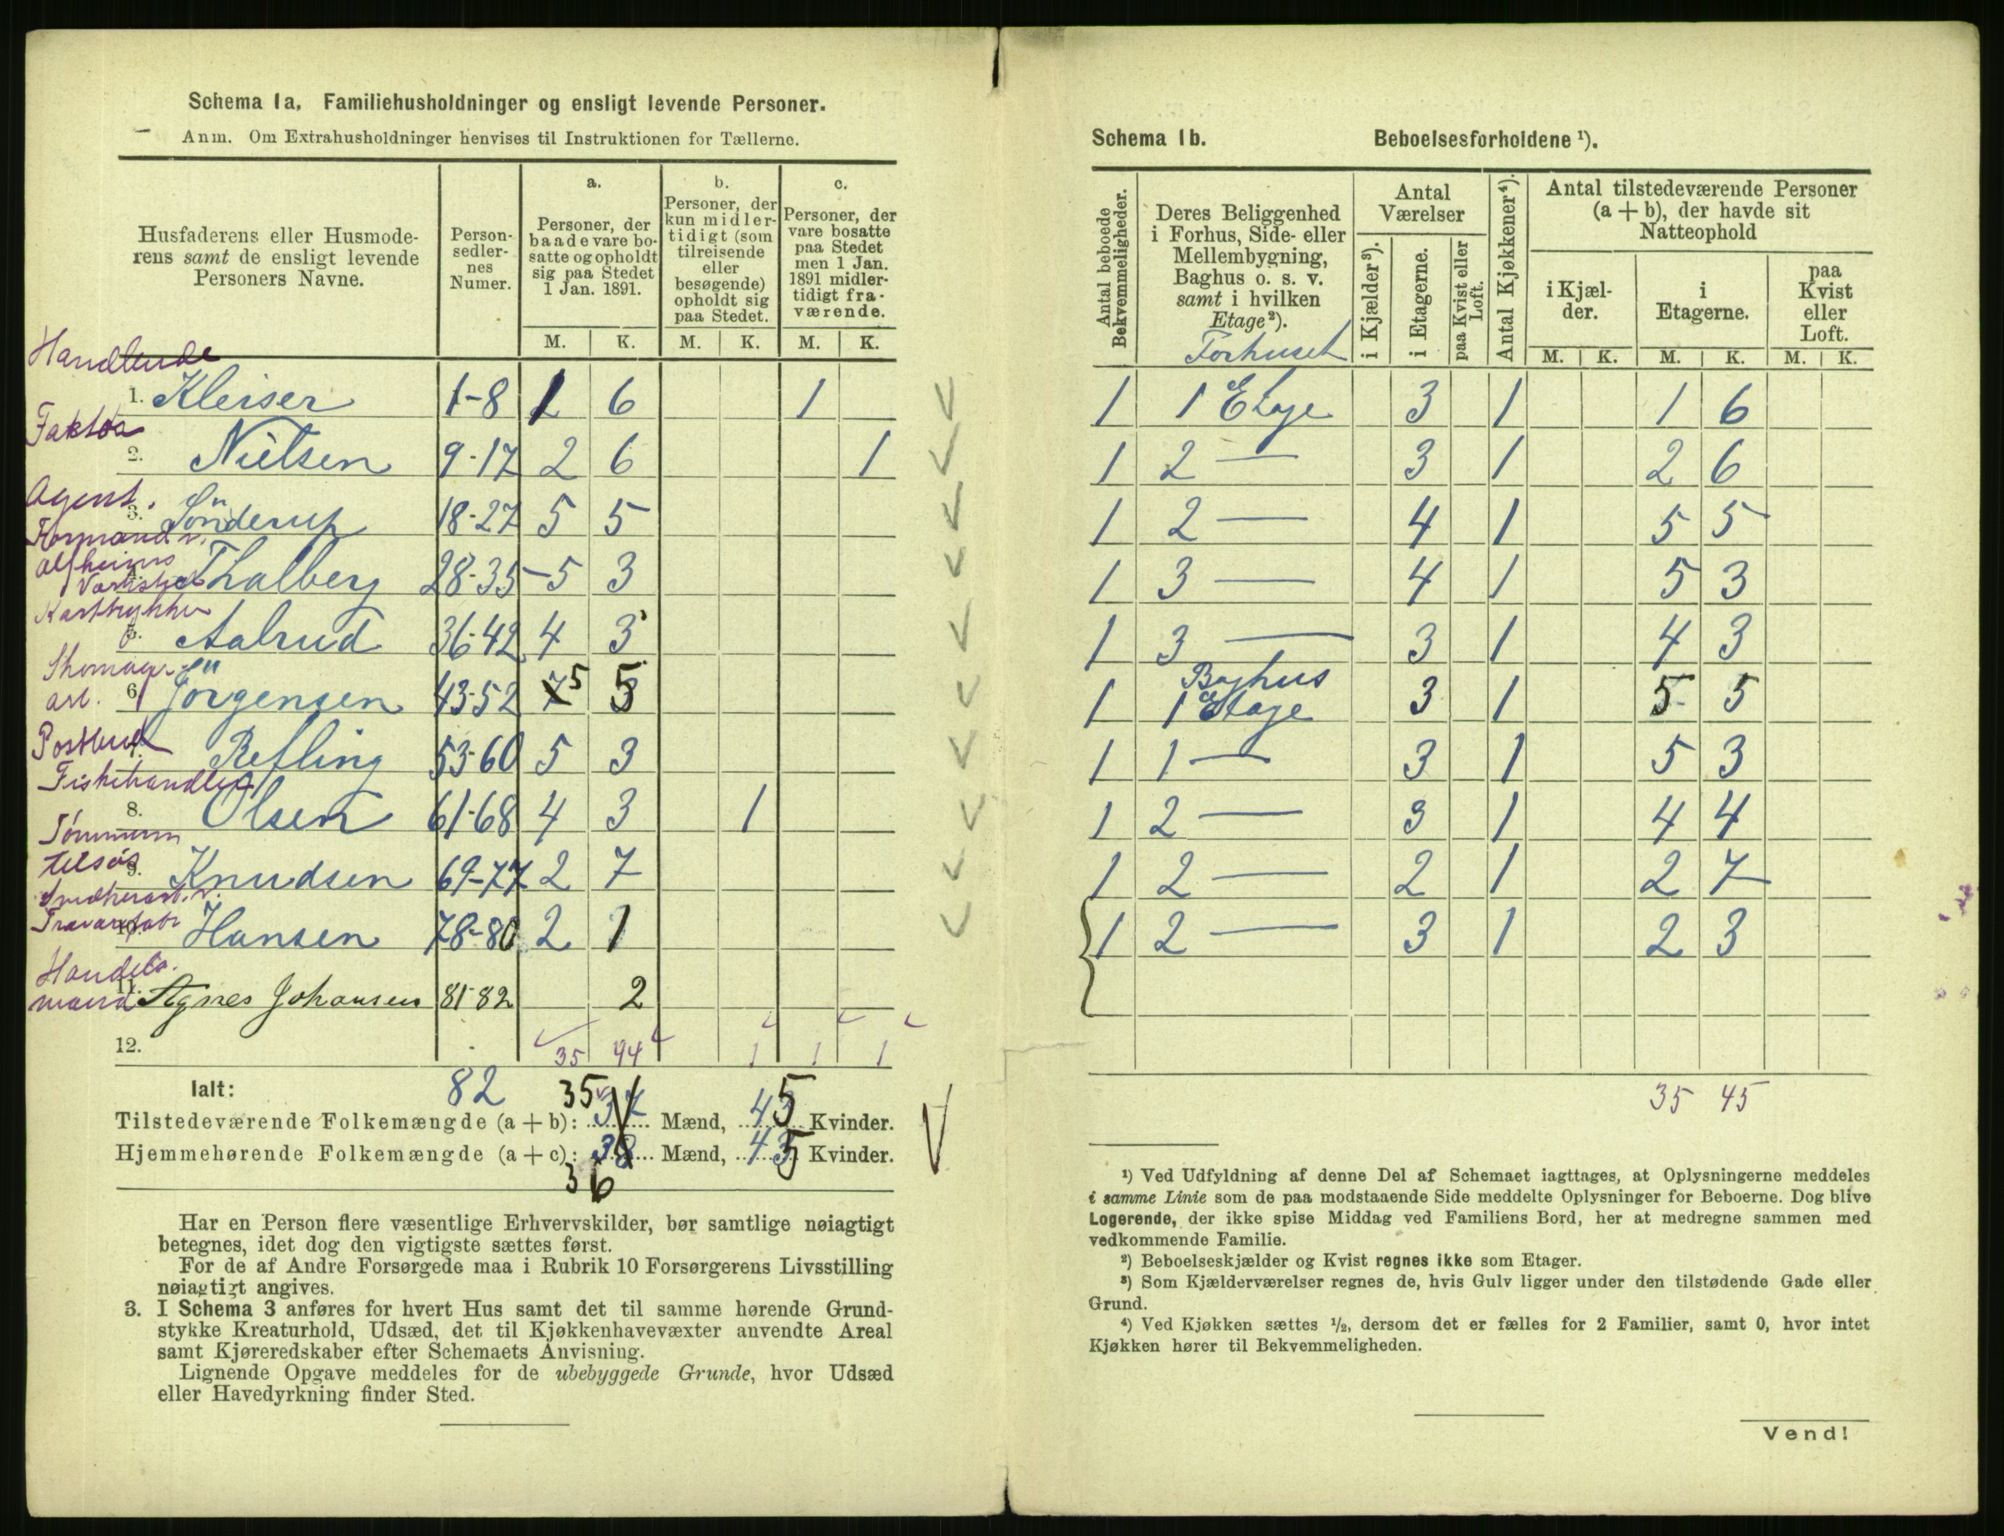 Schema 1a. Familiehusholdninger og ensligt levende Personer.
Anm. Om Extrahusholdninger henvises til Instruktionen for Tællerne.
Husfaderens eller Husmoderens samt de ensligt levende Personers Navne.
Person-sedler-nes Numer.
a. Personer, der baade vare bosatte og opholdt sig paa Stedet 1 Jan. 1891.
b. Personer, der kun midlertidigt (som tilreisende eller besøgende) opholdt sig paa Stedet.
c. Personer, der vare bosatte paa Stedet men 1 Jan. 1891 midlertidigt fraværende.
M. K. M. K. M. K.
Handlende
1. Kleiser 1-8 1 6 1
Faktor
2. Nielsen 9-17 2 6 1
Agent.
3. Sönderup 18-27 5 5
Formand v.
4. Thalberg 28-35 5 3
5. Aalrud 36-42 4 3
Skomager
arb. 6. Jörgensen 43-52 7 5 5
Postbud
7. Refling 53-60 5 3
Fiskehandler
8. Olsen 61-68 4 3 1
Tömmerm
9. Knudsen 69-77 2 7
10. Hansen 78-80 2 1
Handels
mand 11. Agnes Johansen 81-82 2
12. 35 44 1 1 1
Ialt: 82
Tilstedeværende Folkemængde (a + b): 35 37 Mænd, 45 Kvinder.
Hjemmehørende Folkemængde (a + c): 38 Mænd, 45 Kvinder.
36
Har en Person flere væsentlige Erhvervskilder, bør samtlige nøiagtigt
betegnes, idet dog den vigtigste sættes først.
For de af Andre Forsørgede maa i Rubrik 10 Forsørgerens Livsstilling
nøiagtigt angives.
3. I Schema 3 anføres for hvert Hus samt det til samme hørende Grund-
stykke Kreaturhold, Udsæd, det til Kjøkkenhavevæxter anvendte Areal
samt Kjøreredskaber efter Schemaets Anvisning.
Lignende Opgave meddeles for de ubebyggede Grunde, hvor Udsæd
eller Havedyrkning finder Sted.
Schema 1b. Beboelsesforholdene ¹).
Antal beboede Bekvemmeligheder.
Deres Beliggenhed i Forhus, Side- eller Mellembygning, Baghus o. s. v. samt i hvilken Etage²).
Antal Værelser
i Kjælder³).
i Etagerne.
paa Kvist eller Loft.
Antal Kjøkkener⁴).
Antal tilstedeværende Personer (a + b), der havde sit Natteophold
i Kjælder.
i Etagerne.
paa Kvist eller Loft.
M. K. M. K. M. K.
Forhuset
1 1 Etage 3 1 1 6
1 2 — 3 1 2 6
1 2 — 4 1 5 5
1 3 — 4 1 5 3
1 3 — 3 1 4 3
Baghus
1 1 Etage 3 1 5 5
1 1 — 3 1 5 3
1 2 — 3 1 4 4
1 2 — 2 1 2 7
1 2 — 3 1 2 3
35 45
¹) Ved Udfyldning af denne Del af Schemaet iagttages, at Oplysningerne meddeles
i samme Linie som de paa modstaaende Side meddelte Oplysninger for Beboerne. Dog blive
Logerende, der ikke spise Middag ved Familiens Bord, her at medregne sammen med
vedkommende Familie.
²) Beboelseskjælder og Kvist regnes ikke som Etager.
³) Som Kjælderværelser regnes de, hvis Gulv ligger under den tilstødende Gade eller
Grund.
⁴) Ved Kjøkken sættes ½, dersom det er fælles for 2 Familier, samt 0, hvor intet
Kjøkken hører til Bekvemmeligheden.
Vend!